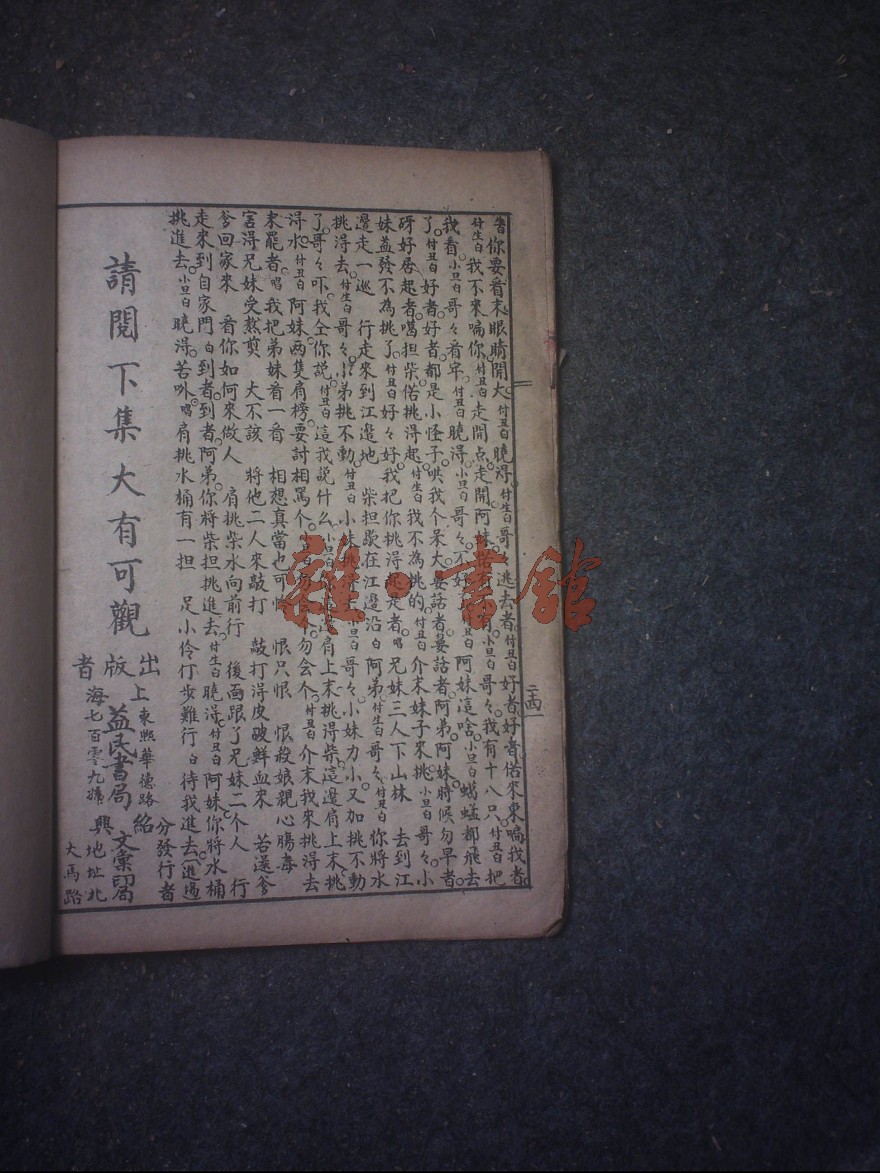 告你要看末眼睛開大付丑白曉得付生白哥々逃去者付丑白好者好者偌來東嗝我者
付生白我不來嗝你付丑白走開点走開阿妹小旦白哥々我有十八只付丑白把
我看小旦白哥々看牢付丑白曉得小旦白哥々不好丑白阿妹這啥小旦白蜡蜢都飛去
了付丑白好者好者都是小怪子哄我个呆大要話者要話者阿弟阿妹時候勿早者
砑好居起者噶担柴偌挑得起付生白我不為挑的付丑白介末妹子來挑小旦白哥々小
妹益發不為挑了付丑白好々好我把你挑得起是者唱兄妹三人下山林 去到江
邊走一巡 行走來到江邊地 柴担歇在江邊沿白阿弟付生白哥々付丑白你將水
挑得去付生白哥々小弟挑不動付丑白小妹挑小旦白哥々小妹力小又加挑不動
了哥々吓我仝你説付丑白這我説什么小旦白肩上末挑得柴這邊肩上末挑
得水付丑白阿妹兩隻肩榜要討相罵个勿会个付丑白介末我來挑得去
末罷者唱我把弟妹看一看 相想真當也可 恨只恨 恨殺娘親心腸毒
害得兄妹受熬煎 大不該 將他二人來敲打 敲打得皮破鮮血來 若還爹
爹回家來 看你如何來做人 肩挑柴水向前行 後面跟了兄妹二个人 行
走來到自家門白到者到者阿弟你將柴担挑進去付生白曉得付丑白阿妹你將水桶
挑進去小旦白曉得苦吥唱肩挑水桶有一担 足小伶仃步難行白待我進去
請閱下集大有可觀
出版者
上海東熙華德路七百零九號
益民書局
分發行者
紹興
文彙印局
地址北大馬路
二十四
雜·書館